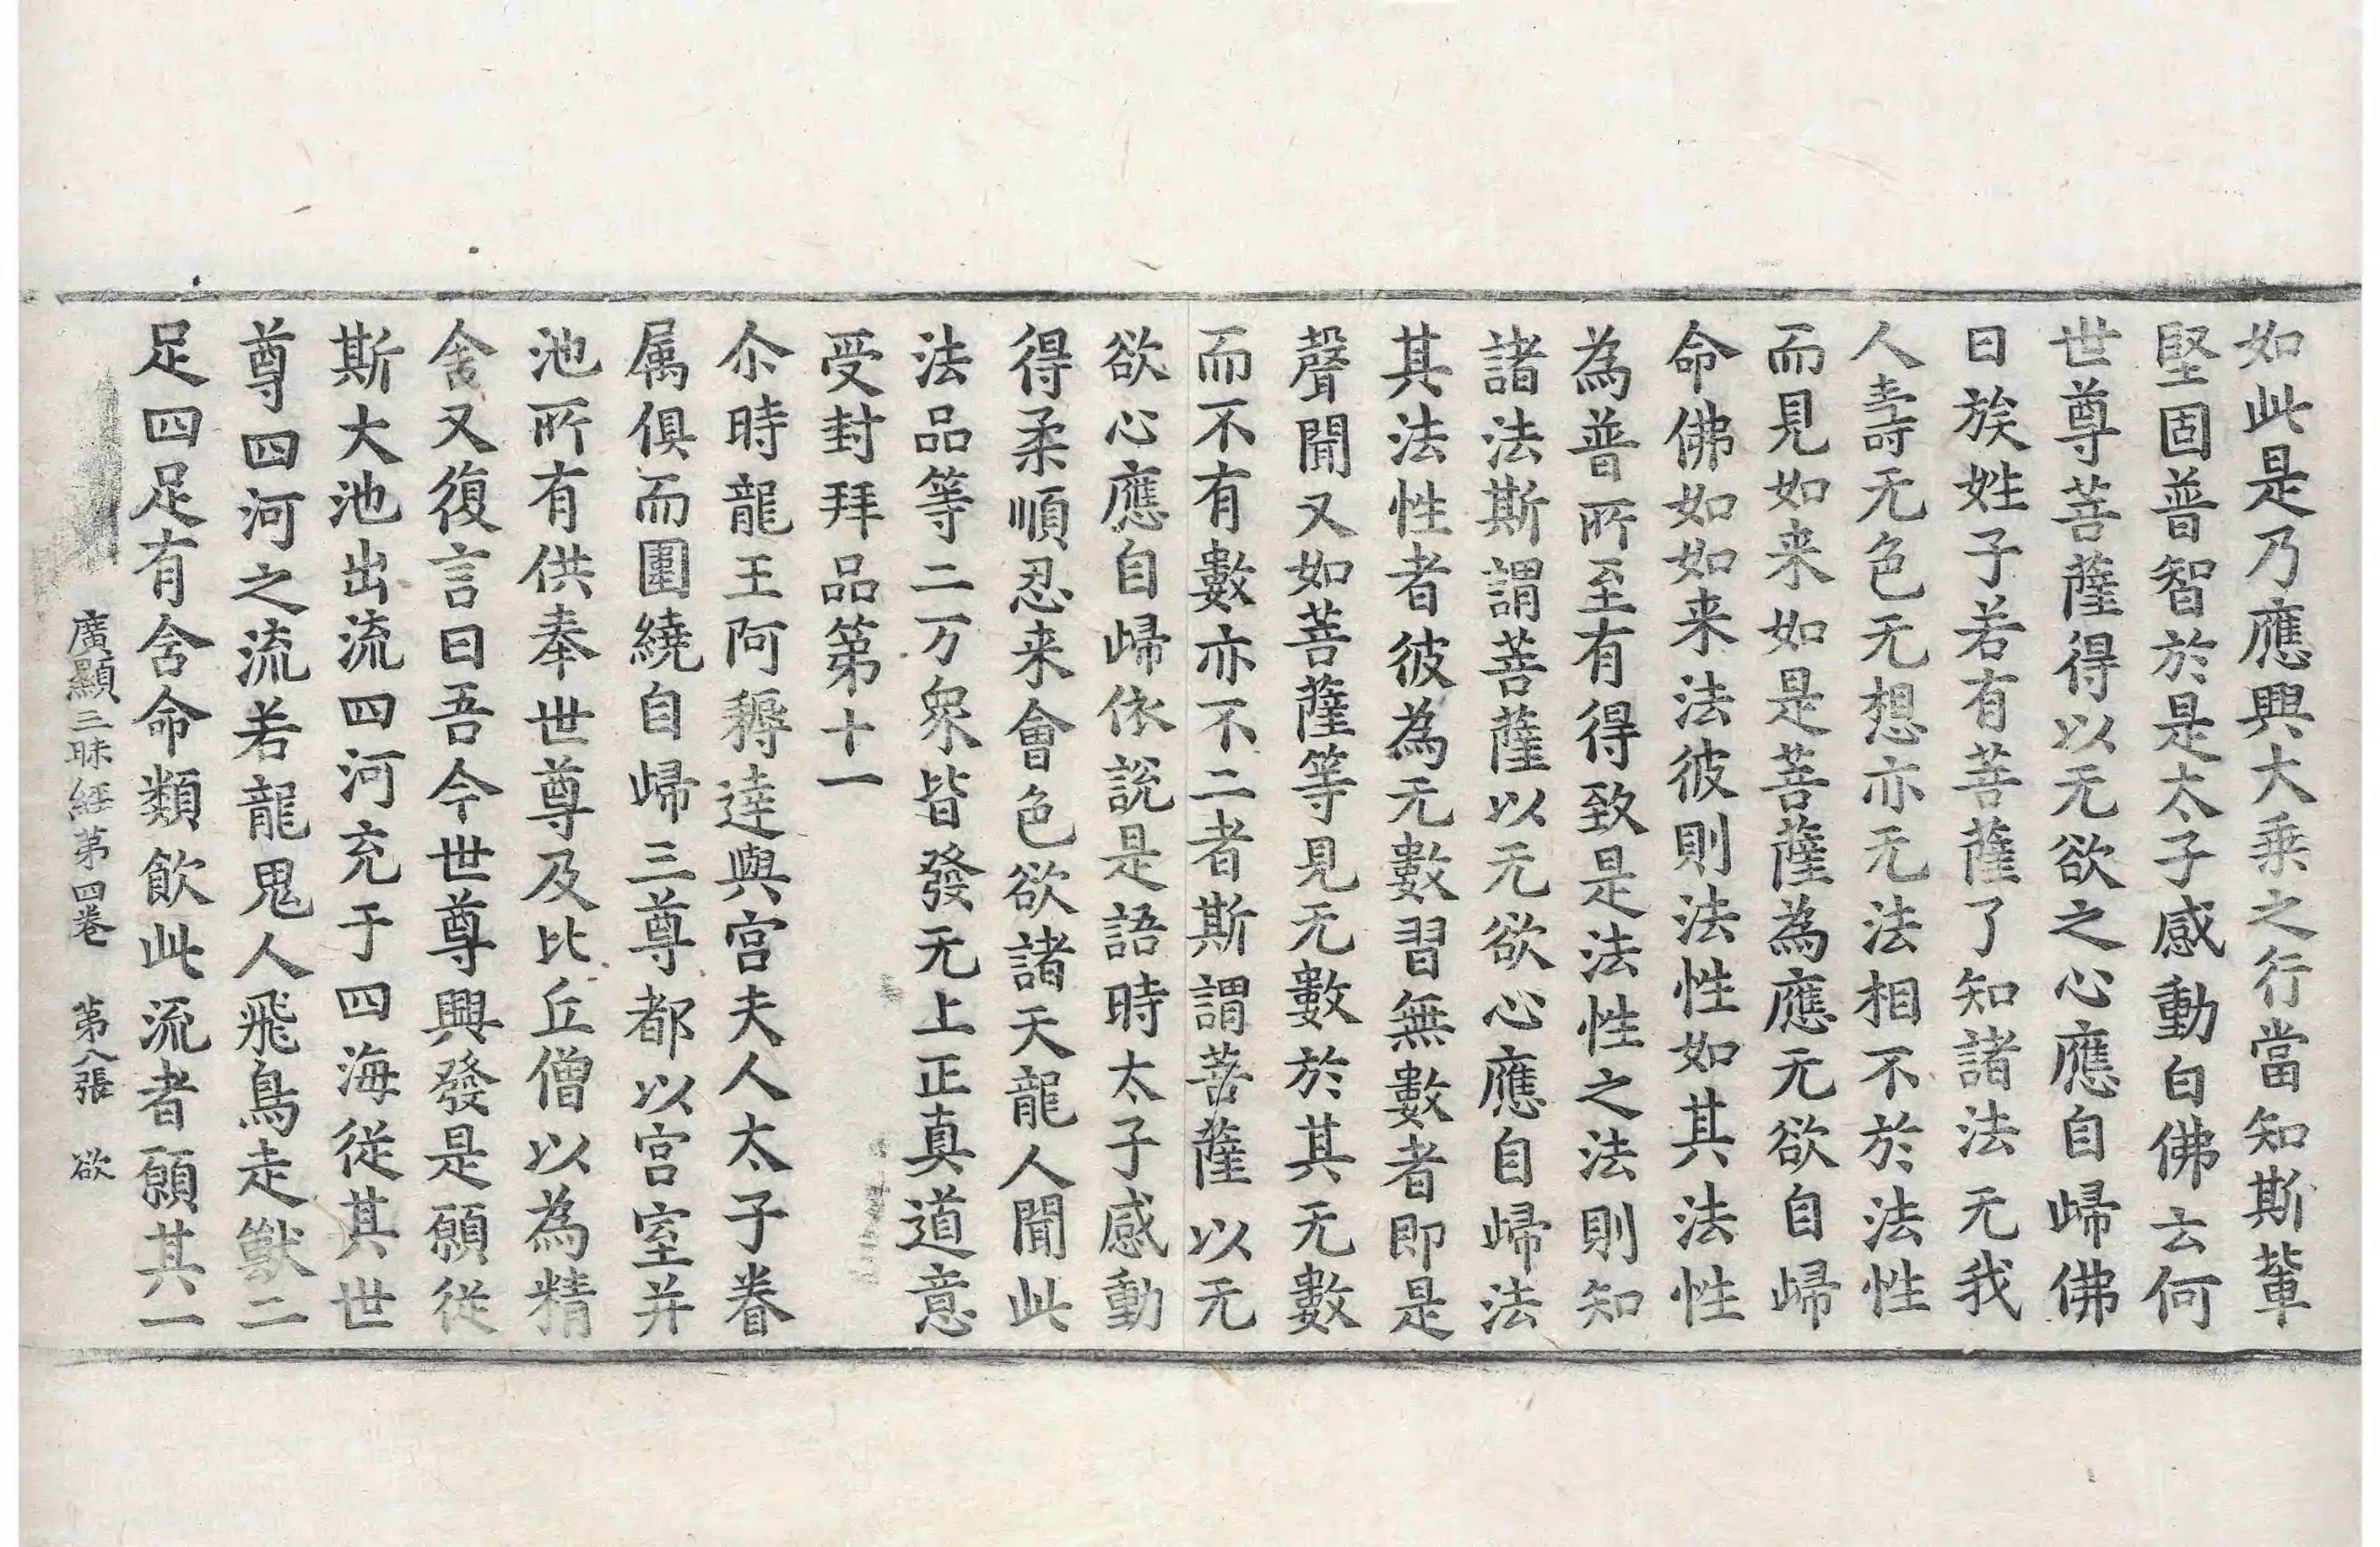 如此是乃應興大乘之行當知斯輩
堅固普智於是太子感動白佛云何
世尊菩薩得以无欲之心應自歸佛
曰族姓子若有菩薩了知諸法无我
人壽无色无想亦无法相不於法性
而見如来如是菩薩為應无欲自歸
命佛如如来法彼則法性如其法性
為普所至有得致是法性之法則知
諸法斯謂菩薩以无欲心應自歸法
其法性者彼為无數習無數者即是
聲聞又如菩薩等見无數於其无數
而不有數亦不二者斯謂菩薩以无
欲心應自歸依說是語時太子感動
得柔順忍来會色欲諸天龍人聞此
法品等二万衆皆發无上正真道意
受封拜品第十一
尒時龍王阿耨達與宮夫人太子眷
属俱而圍繞自歸三尊都以宮室并
池所有供奉世尊及比丘僧以為精
舍又復言曰吾今世尊興發是願從
斯大池出流四河充于四海從其世
尊四河之流若龍鬼人飛鳥走獸二
足四足有含命類飲此流者願其一
廣顯三昧經第四卷 第八張 欲